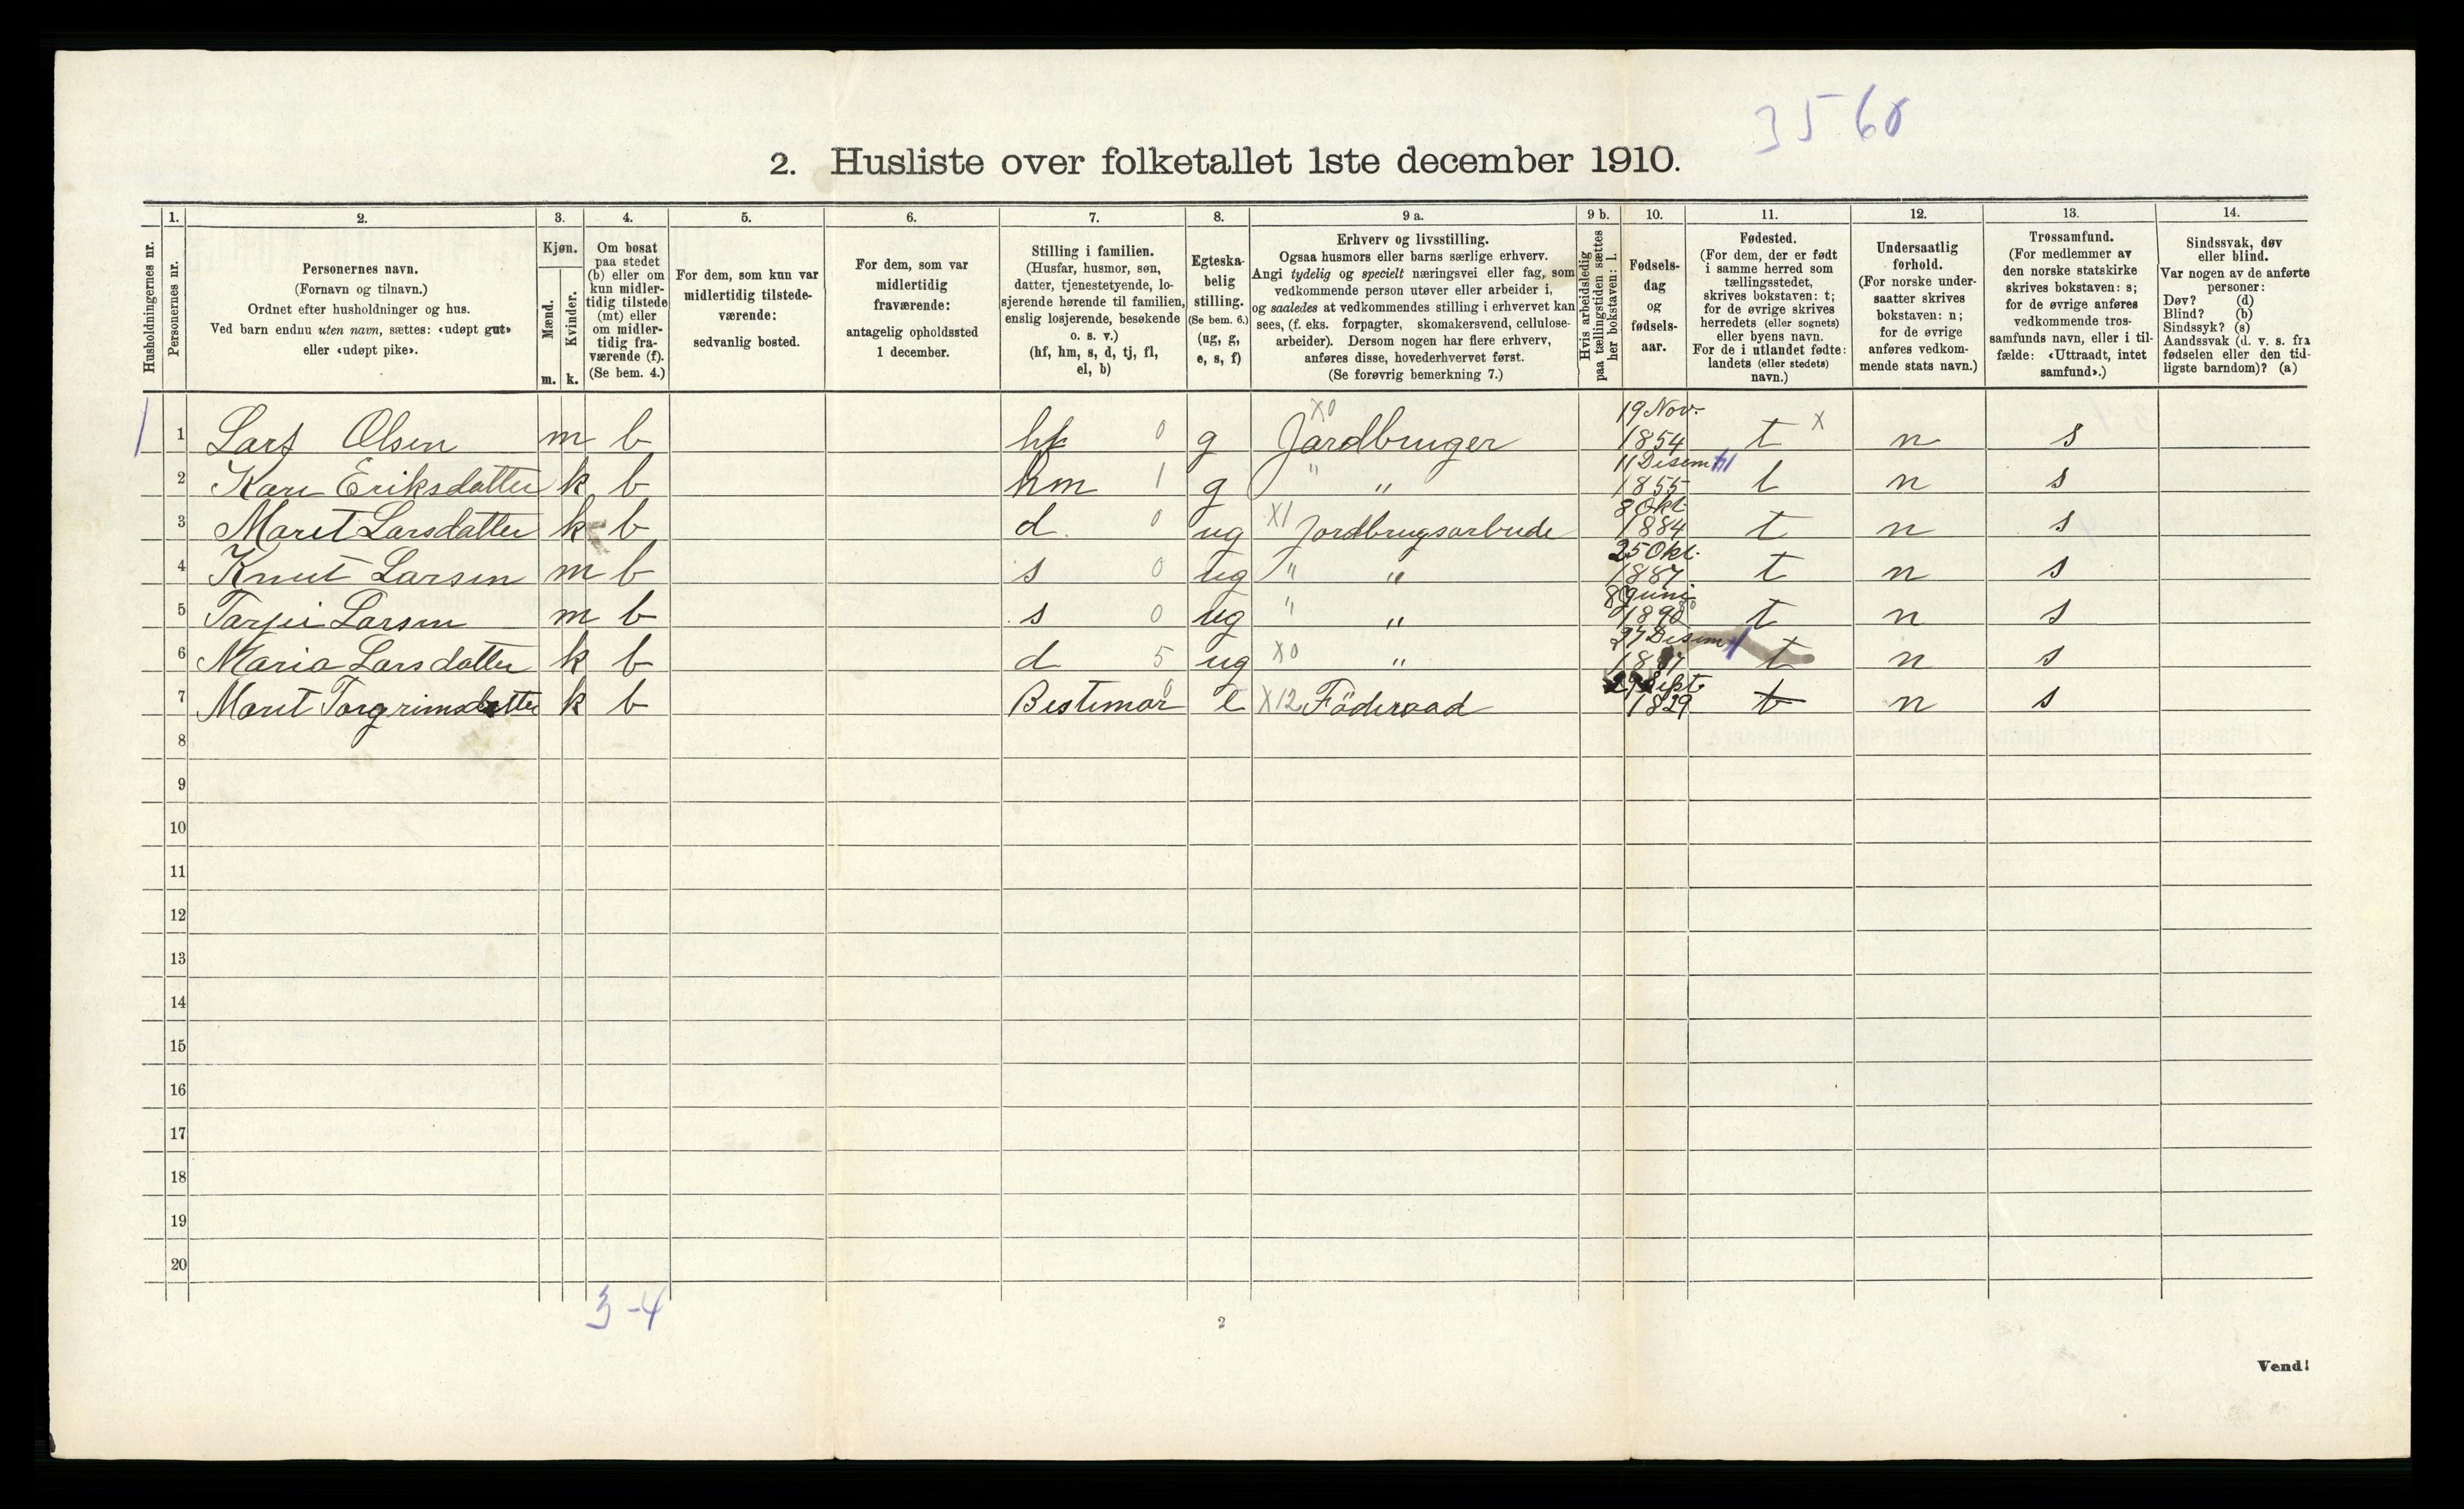 3560
2. Husliste over folketallet 1ste december 1910.
Husholdningernes nr.
1. Personernes nr.
2. Personernes navn.
(Fornavn og tilnavn.)
Ordnet efter husholdninger og hus.
Ved barn endnu uten navn, sættes: «udøpt gut»
eller «udøpt pike».
3. Kjøn.
Mænd. m.
Kvinder. k.
4. Om bosat
paa stedet
(b) eller om
kun midler-
tidig tilstede
(mt) eller
om midler-
tidig fra-
værende (f).
(Se bem. 4.)
5. For dem, som kun var
midlertidig tilstede-
værende:
sedvanlig bosted.
6. For dem, som var
midlertidig
fraværende:
antagelig opholdssted
1 december.
7. Stilling i familien.
(Husfar, husmor, søn,
datter, tjenestetyende, lo-
sjerende hørende til familien,
enslig losjerende, besøkende
o. s. v.)
(hf, hm, s, d, tj, fl,
el, b)
8. Egteska-
belig
stilling.
(Se bem. 6.)
(ug, g,
e, s, f)
9 a. Erhverv og livsstilling.
Ogsaa husmors eller barns særlige erhverv.
Angi tydelig og specielt næringsvei eller fag, som
vedkommende person utøver eller arbeider i,
og saaledes at vedkommendes stilling i erhvervet kan
sees, (f. eks. forpagter, skomakersvend, cellulose-
arbeider). Dersom nogen har flere erhverv,
anføres disse, hovederhvervet først.
(Se forøvrig bemerkning 7.)
9 b. Hvis arbeidsledig
paa tællingstiden sættes
her bokstaven: l.
10. Fødsels-
dag
og
fødsels-
aar.
11. Fødested.
(For dem, der er født
i samme herred som
tællingsstedet,
skrives bokstaven: t;
for de øvrige skrives
herredets (eller sognets)
eller byens navn.
For de i utlandet fødte:
landets (eller stedets)
navn.)
12. Undersaatlig
forhold.
(For norske under-
saatter skrives
bokstaven: n;
for de øvrige
anføres vedkom-
mende stats navn.)
13. Trossamfund.
(For medlemmer av
den norske statskirke
skrives bokstaven: s;
for de øvrige anføres
vedkommende tros-
samfunds navn, eller i til-
fælde: «Uttraadt, intet
samfund».)
14. Sindssvak, døv
eller blind.
Var nogen av de anførte
personer:
Døv? (d)
Blind? (b)
Sindssyk? (s)
Aandssvak (d. v. s. fra
fødselen eller den tid-
ligste barndom)? (a)
1 1 Lars Olsen m b hf 0 g X0 Jordbruger 19 Nov. 1854 t X n s
2 Kari Eriksdatter k b hm 1 g " " 11 Disem 1855 t n s
3 Marit Larsdatter k b d 0 ug X1 Jordbrugsarbeide 8 Okt. 1884 t n s
4 Knut Larsen m b s 0 ug " " 25 Okt. 1887 t n s
5 Tarjei Larsen m b s 0 ug " " 8 Juni 1890 t n s
6 Maria Larsdatter k b d 5 ug X0 " 27 Disem t n s
7 Marit Torgrimsdatter k b Bestemor 0 e X12 Föderaad 29 Sept. 1829 t n s
8
9
10
11
12
13
14
15
16
17
18
19
20
3-4
2
Vend!